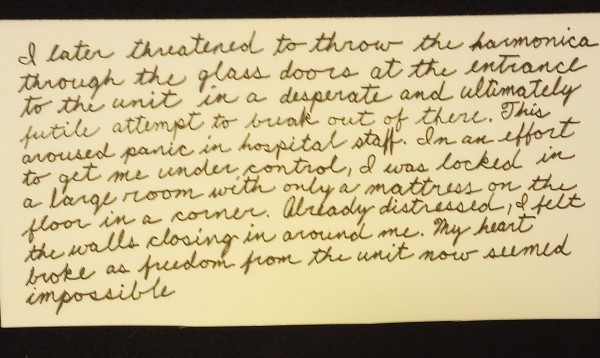 I later threatened to throw the harmonica
through the glass doors at the entrance
to the unit in a desperate and ultimately
futile attempt to break out of there. This
aroused panic in hospital staff. In an effort
to get me under control, I was locked in
a large room with only a mattress on the
floor in a corner. Already distressed, I felt
the walls closing in around me. My heart
broke as freedom from the unit now seemed
impossible